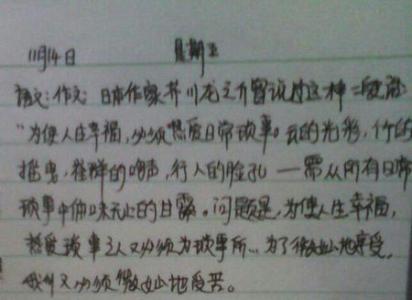 11月14日 星期五
语文：作文：日本作家芥川龙之介曾说过这种一段话
"为使人生幸福，必须热爱日常琐事。云的光彩，竹的
摇曳，雀群的鸣声，行人的脸孔——需从所有日常
琐事中体味无上的甘露。问题是，为使人生幸福，
热爱琐事之人又必须为琐事所…为了微妙地享受，
我们又必须微妙地受苦。